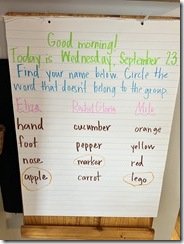 Good morning!
Today is Wednesday, September 23
Find your name below. Circle the
word that doesn't belong to the group.
Eliza Milo
hand cucumber orange
foot pepper yellow
nose marker red
apple carrot lego